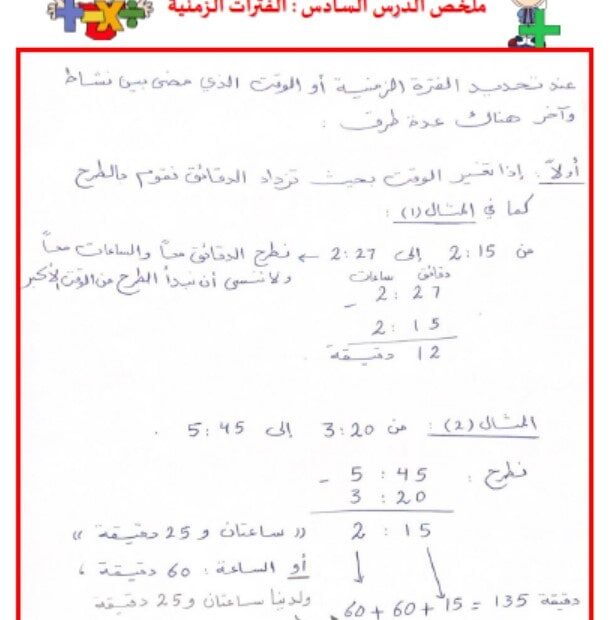 ملخص الدرس السادس : الفترات الزمنية
عند تحديد الفترة الزمنية أو الوقت الذي مضى بين نشاط
وآخر هناك عدة طرق :
أولاً : إذا تغير الوقت بحيث تزداد الدقائق نقوم بالطرح
كما في المثال (1) :
من 2:15 إلى 2:27 ← نطرح الدقائق معاً والساعات معاً
ولا ننسى أن نبدأ الطرح من الوقت الأكبر
ساعات دقائق
2 : 27 -
2 : 15
12 دقيقة
المثال (2) : من 3:20 إلى 5:45 .
نطرح :
- 5 : 45
3 : 20
2 : 15 (( ساعتان و 25 دقيقة ))
أو الساعة : 60 دقيقة ،
ولدينا ساعتان و 25 دقيقة
60 + 60 + 15 = 135 دقيقة